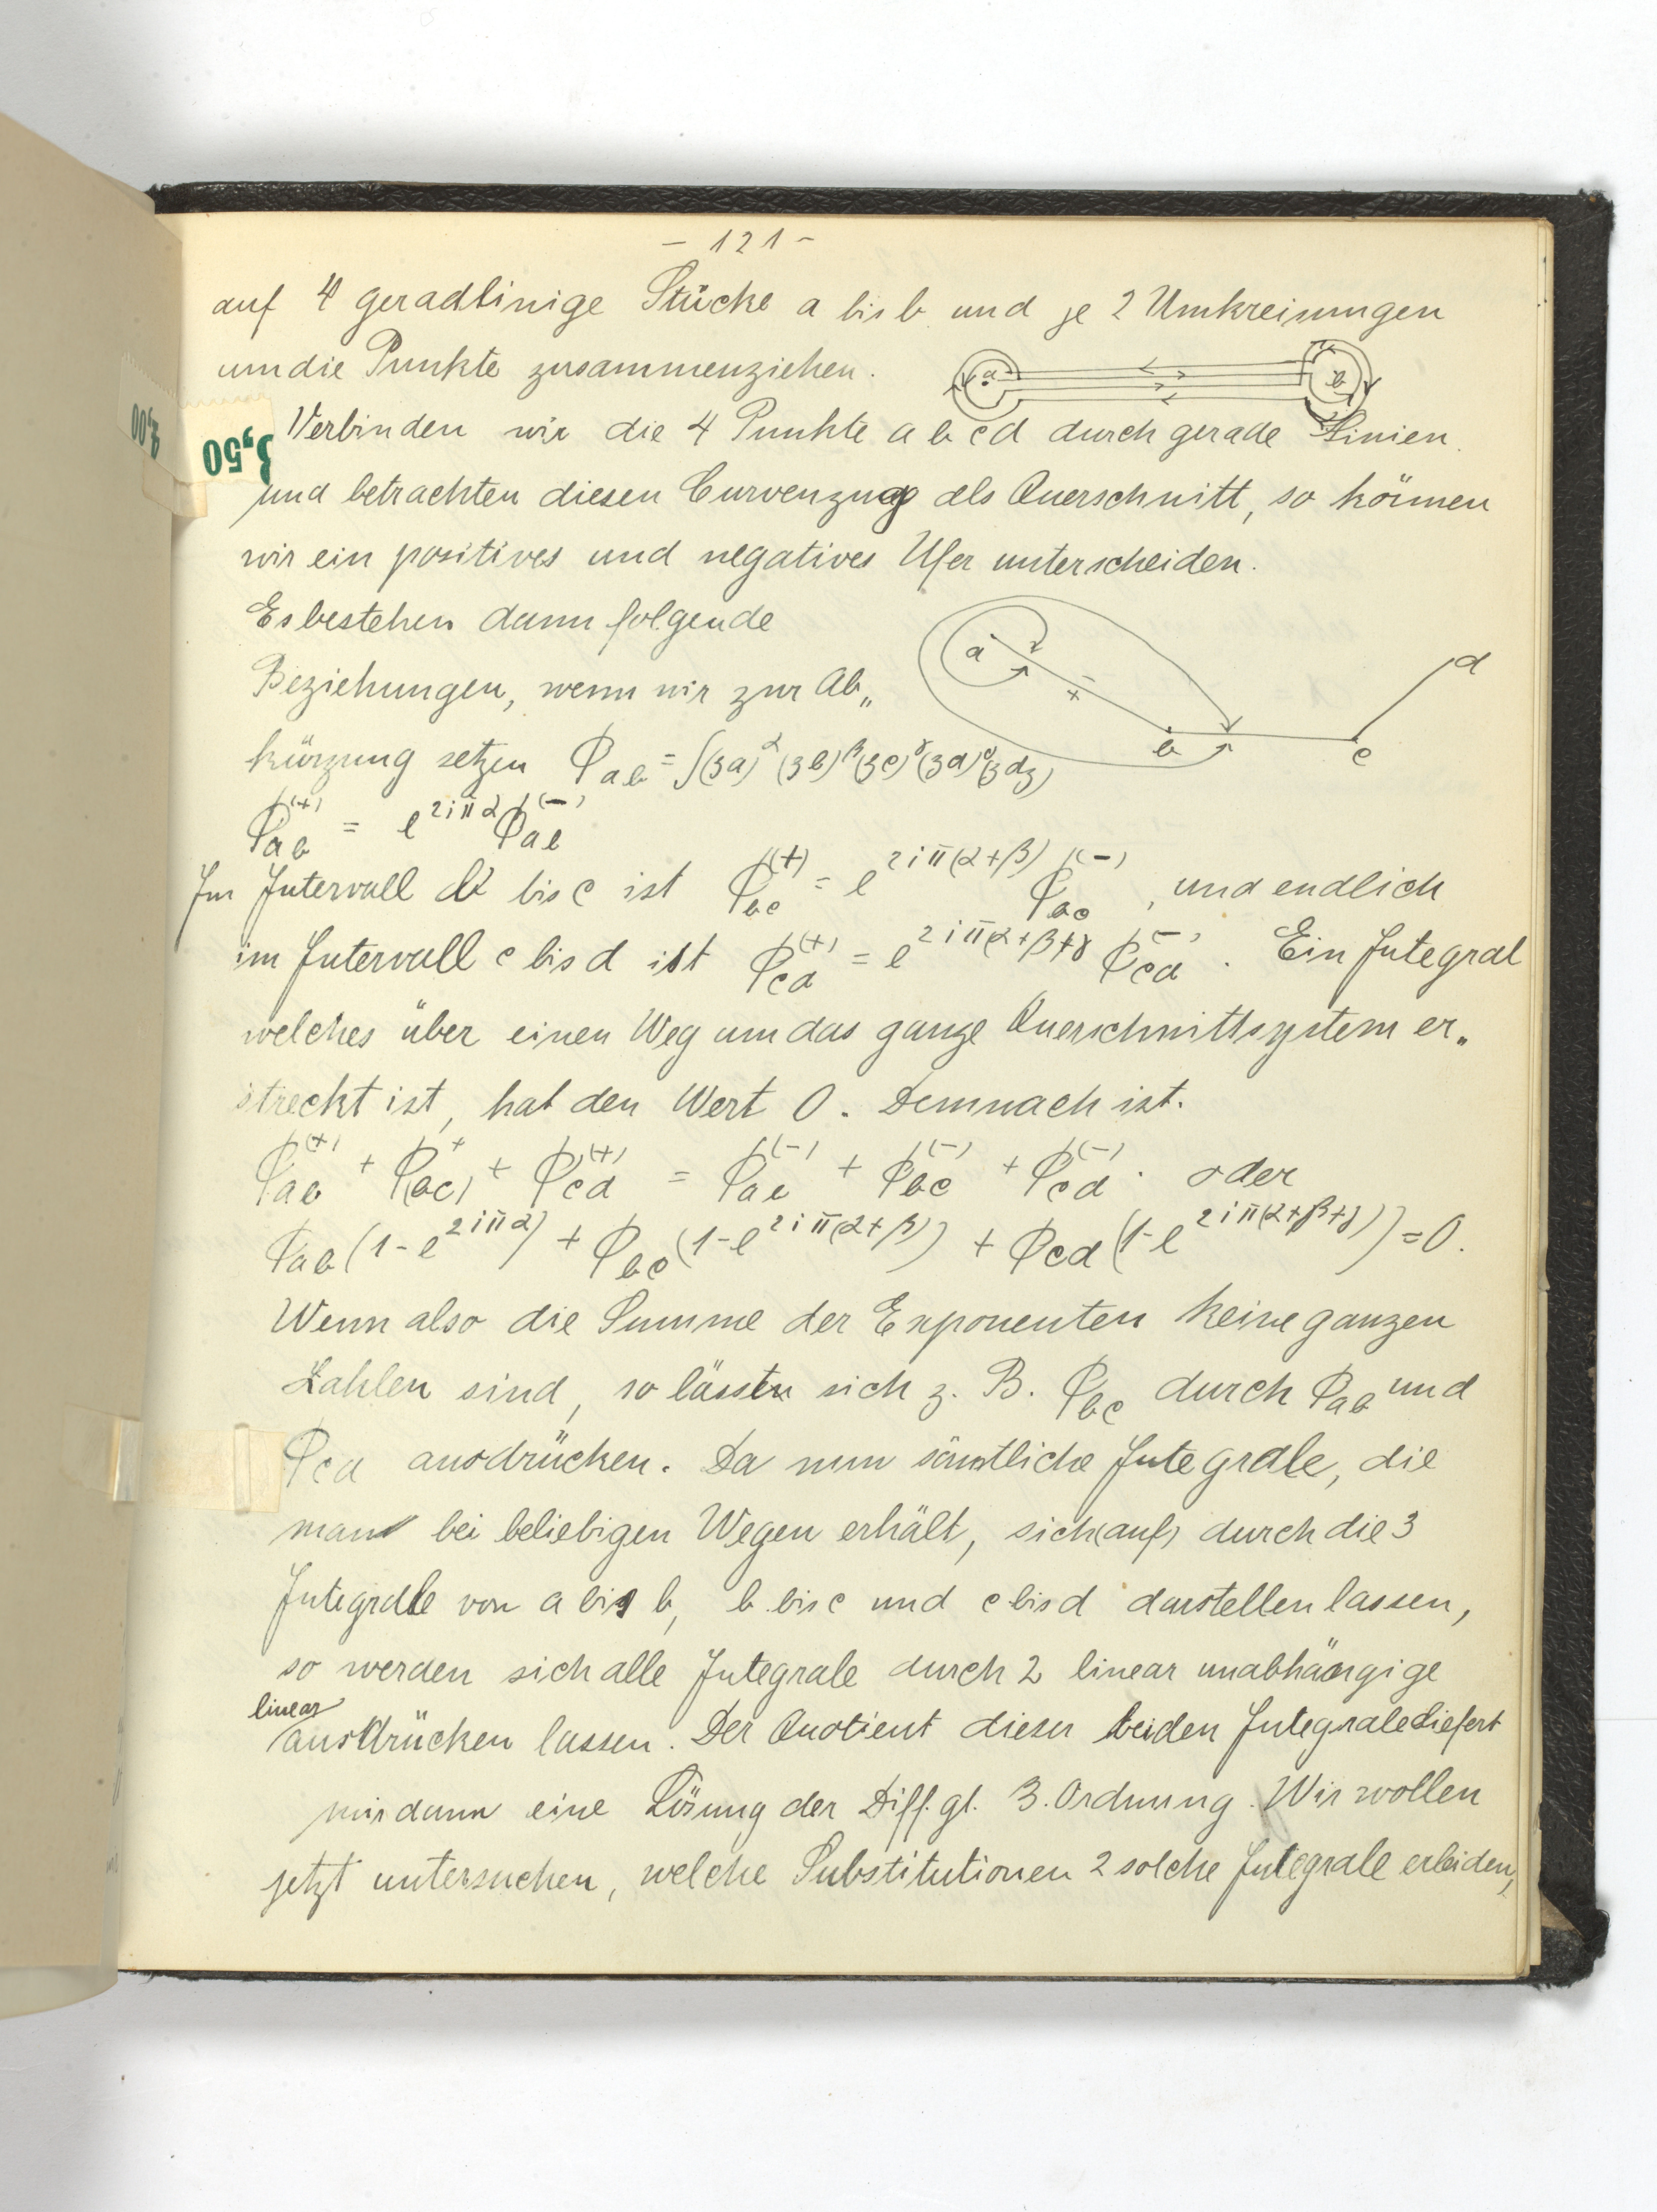 - 121 -
auf 4 geradlinige Stücke a bis b und je 2 Umkreisungen
um die Punkte zusammenziehen.
a b
Verbinden wir die 4 Punkte a b c d durch gerade Linien
3,50
und betrachten diesen Curvenzug als Querschnitt, so können
wir ein positives und negatives Ufer unterscheiden.
Es bestehen dann folgende
Beziehungen, wenn wir zur Ab„
a + - b c d
kürzung setzen Φ_ab = ∫(za)^α (zb)^β (zc)^γ (zd)^δ (z dz)
Φ_ab^(+) = e^{2iπα} Φ_ab^(-)
Im Intervall b bis c ist Φ_bc^(+) = e^{2iπ(α+β)} Φ_bc^(-), und endlich
im Intervall c bis d ist Φ_cd^(+) = e^{2iπ(α+β+γ} Φ_cd^(-). Ein Integral
welches über einen Weg um das ganze Querschnittsystem er„
streckt ist, hat den Wert 0. Demnach ist.
Φ_ab^(+) + Φ_(bc)^+ + Φ_cd^(+) = Φ_ab^(-) + Φ_bc^(-) + Φ_cd^(-). oder
Φ_ab(1-e^{2iπα}) + Φ_bc(1-e^{2iπ(α+β)}) + Φ_cd(1-e^{2iπ(α+β+γ)}) = 0.
Wenn also die Summe der Exponenten keine ganzen
Zahlen sind, so lässtn sich z. B. Φ_bc durch Φ_ab und
Φ_cd ausdrücken. Da nun sämtliche Integrale, die
man bei beliebigen Wegen erhält, sich (auf) durch die 3
Integrale von a bis b, b bis c und c bis d darstellen lassen,
so werden sich alle Integrale durch 2 linear unabhängige
linear
ausdrücken lassen. Der Quotient dieser beiden Integrale liefert
mir dann eine Lösung der Diff. gl. 3. Ordnung. Wir wollen
jetzt untersuchen, welche Substitutionen 2 solche Integrale erleiden,